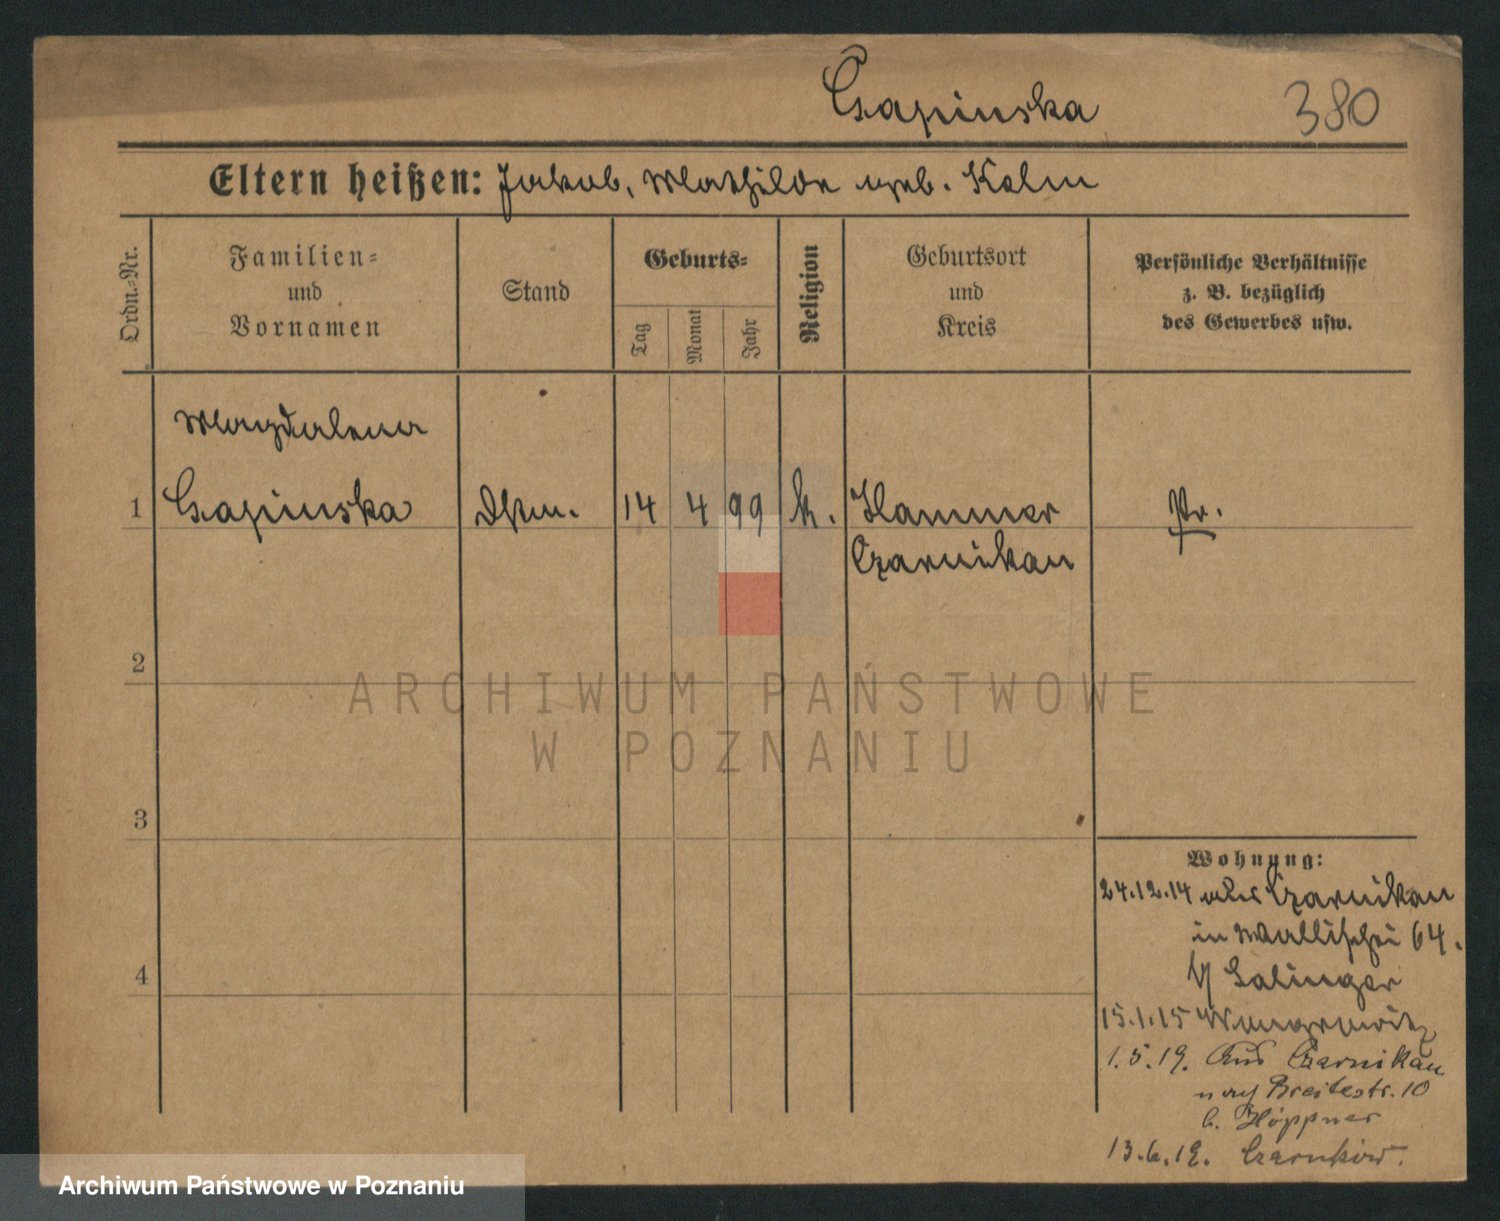 Czapinska
380
Eltern heißen: Jakob, Mathilde geb. Kalm
Ordn.-Nr.
Familien- und Vornamen
Stand
Geburts-
Tag
Monat
Jahr
Religion
Geburtsort und Kreis
Persönliche Verhältnisse z. B. bezüglich des Gewerbes usw.
Magdalena
1 Czapinska 14 4 99 k. Hammer Pr.
Czarnikau
2
3
4
Wohnung:
24.12.14 aus Czarnikau
in Wallischei 64.
b/ Salinger
15.1.15 Wongrowitz
1.5.19. Aus Czarnikau
nach Breitestr. 10
b. Höppner
13.6.19. Czarnków.
ARCHIWUM PAŃSTWOWE
W POZNANIU
Archiwum Państwowe w Poznaniu